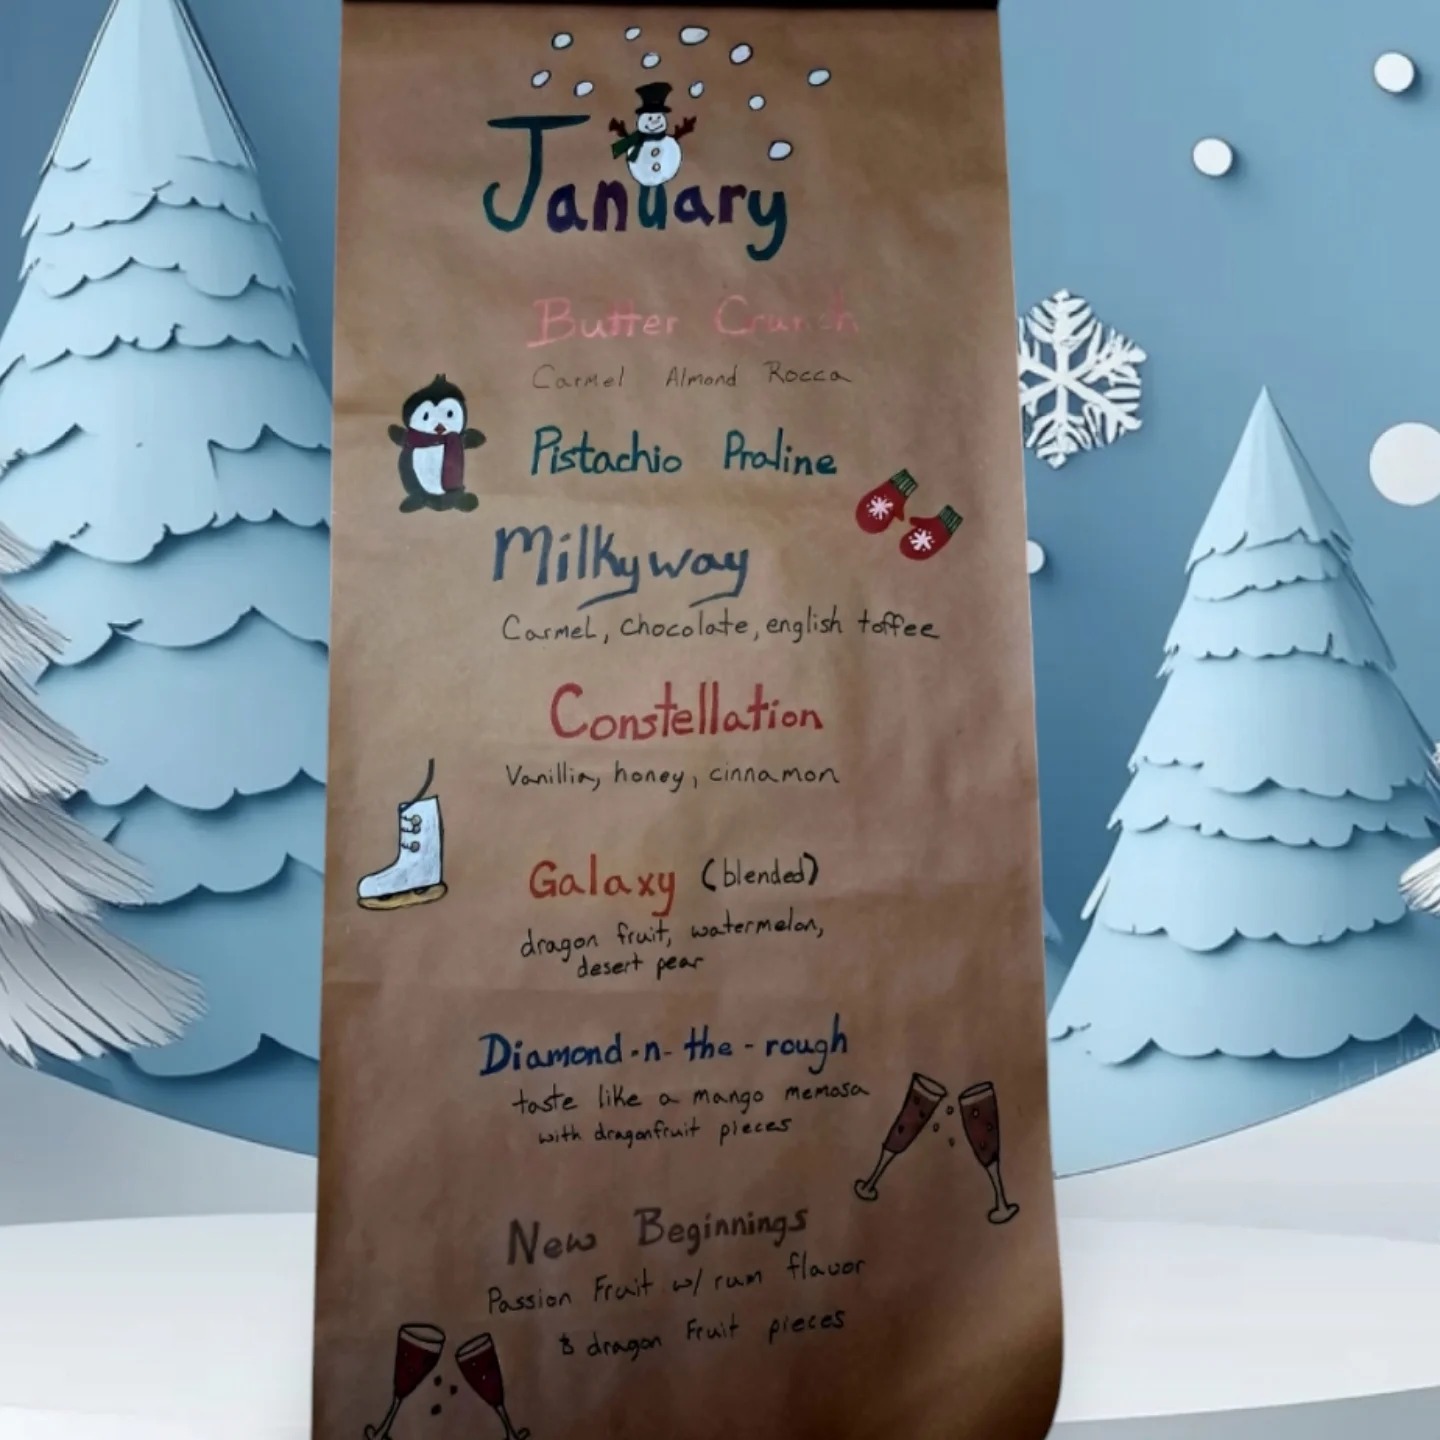 January
Butter Crunch
Carmel Almond Rocca
Pistachio Praline
Milkyway
Carmel, chocolate, english toffee
Constellation
Vanillia, honey, cinnamon
Galaxy (blended)
dragon fruit, watermelon,
desert pear
Diamond-n-the-rough
taste like a mango memosa
with dragonfruit pieces
New Beginnings
Passion Fruit w/ rum flavor
& dragon Fruit pieces